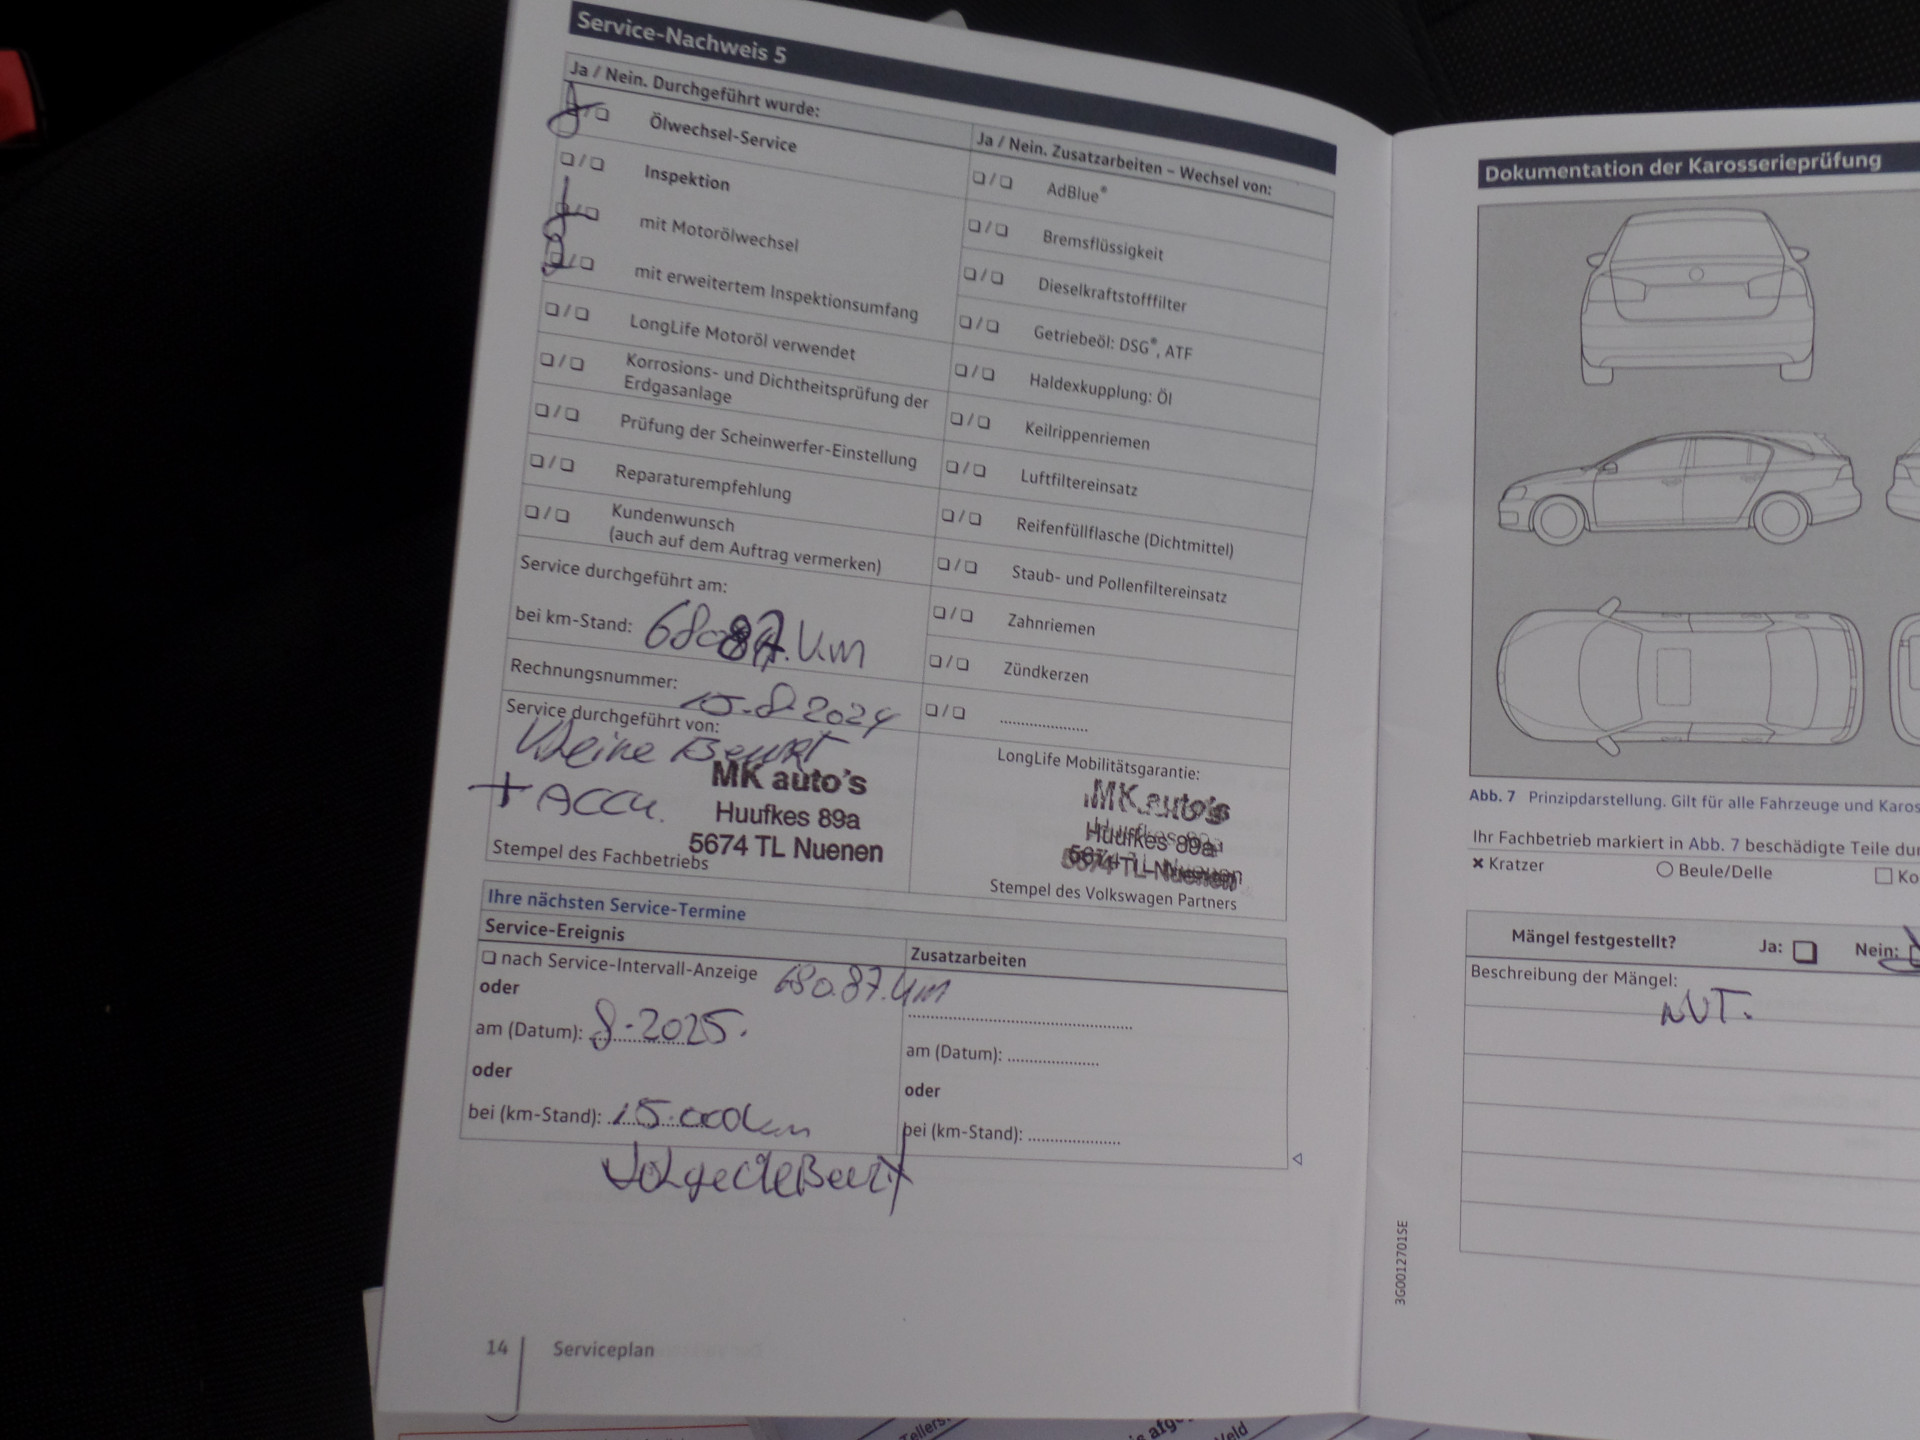 Service-Nachweis 5
Ja / Nein. Durchgeführt wurde:
❏ / ❏ Ölwechsel-Service
❏ / ❏ Inspektion
❏ / ❏ mit Motorölwechsel
❏ / ❏ mit erweitertem Inspektionsumfang
❏ / ❏ LongLife Motoröl verwendet
❏ / ❏ Korrosions- und Dichtheitsprüfung der
Erdgasanlage
❏ / ❏ Prüfung der Scheinwerfer-Einstellung
❏ / ❏ Reparaturempfehlung
❏ / ❏ Kundenwunsch
(auch auf dem Auftrag vermerken)
Service durchgeführt am:
bei km-Stand: 68087.km
Rechnungsnummer: 15-8-2024
Service durchgeführt von:
kleine Beurt
+ ACCU.
MK auto's
Huufkes 89a
5674 TL Nuenen
Stempel des Fachbetriebs
Ja / Nein. Zusatzarbeiten – Wechsel von:
❏ / ❏ AdBlue®
❏ / ❏ Bremsflüssigkeit
❏ / ❏ Dieselkraftstofffilter
❏ / ❏ Getriebeöl: DSG®, ATF
❏ / ❏ Haldexkupplung: Öl
❏ / ❏ Keilrippenriemen
❏ / ❏ Luftfiltereinsatz
❏ / ❏ Reifenfüllflasche (Dichtmittel)
❏ / ❏ Staub- und Pollenfiltereinsatz
❏ / ❏ Zahnriemen
❏ / ❏ Zündkerzen
❏ / ❏ ....................
LongLife Mobilitätsgarantie:
MK auto's
Huufkes 89a
5674 TL Nuenen
Stempel des Volkswagen Partners
Ihre nächsten Service-Termine
Service-Ereignis
❏ nach Service-Intervall-Anzeige 680.87.km
oder
am (Datum): 8-2025.
oder
bei (km-Stand): 15.000km
Volgende Beurt
Zusatzarbeiten
am (Datum): ....................
oder
bei (km-Stand): ....................
14 Serviceplan
Dokumentation der Karosserieprüfung
Abb. 7 Prinzipdarstellung. Gilt für alle Fahrzeuge und Karos
Ihr Fachbetrieb markiert in Abb. 7 beschädigte Teile dur
× Kratzer ○ Beule/Delle □ Ko
Mängel festgestellt? Ja: ❏ Nein:
Beschreibung der Mängel:
NVT.
3G0012701SE